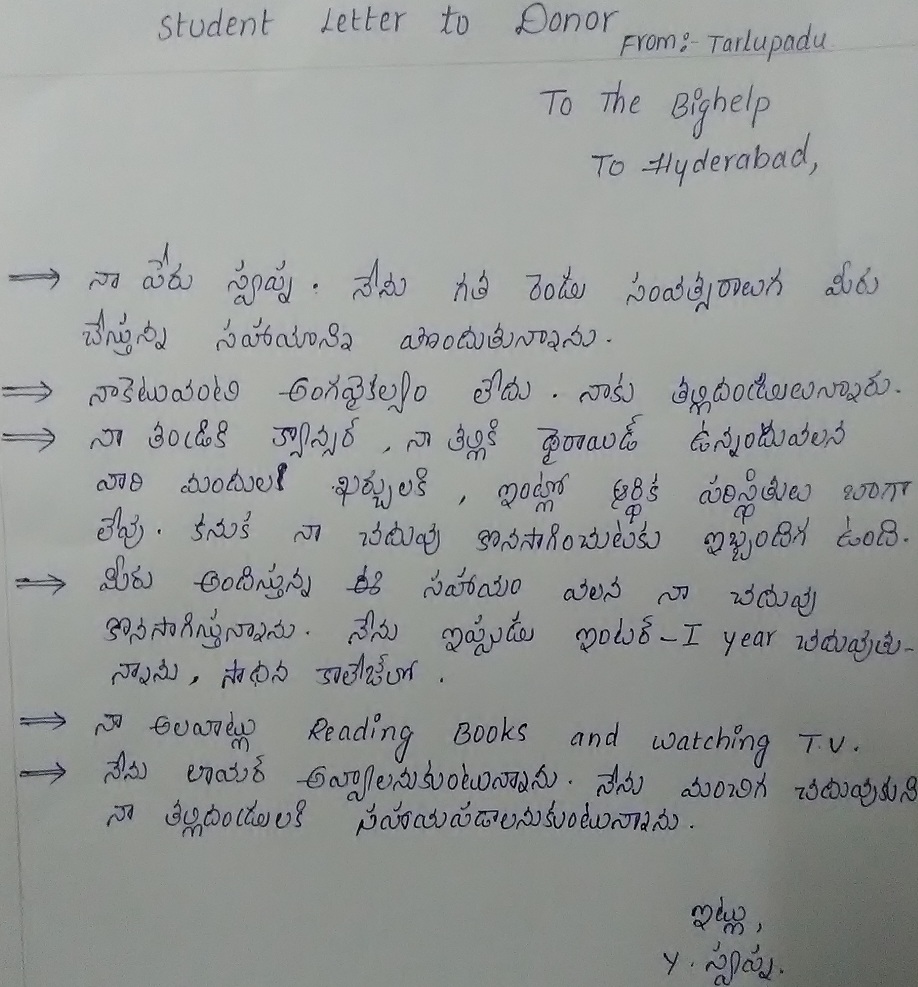 Student Letter to Donor
From:- Tarlupadu
To The Bighelp
To Hyderabad,
⇒ నా పేరు స్వప్న. నేను గత రెండు సంవత్సరాలుగ మీరు
చేస్తున్న సహాయాన్ని పొందుతున్నాను.
⇒ నాకెటువంటి అంగవైకల్యం లేదు. నాకు తల్లిదండ్రులున్నారు.
⇒ నా తండ్రికి క్యాన్సర్, నా తల్లికి థైరాయిడ్ ఉన్నందువలన
వారి మందుల ఖర్చులకి, ఇంట్లో ఆర్థిక పరిస్థితులు బాగా
లేవు. కనుక నా చదువు కొనసాగించుటకు ఇబ్బందిగ ఉంది.
⇒ మీరు అందిస్తున్న ఈ సహాయం వలన నా చదువు
కొనసాగిస్తున్నాను. నేను ఇప్పుడు ఇంటర్-I year చదువుతు-
న్నాను, సాధన కాలేజీలో.
⇒ నా అలవాట్లు Reading Books and watching T.V.
⇒ నేను లాయర్ అవ్వాలనుకుంటున్నాను. నేను మంచిగ చదువుకుని
నా తల్లిదండ్రులకి సహాయపడాలనుకుంటున్నాను.
ఇట్లు,
Y. స్వప్న.